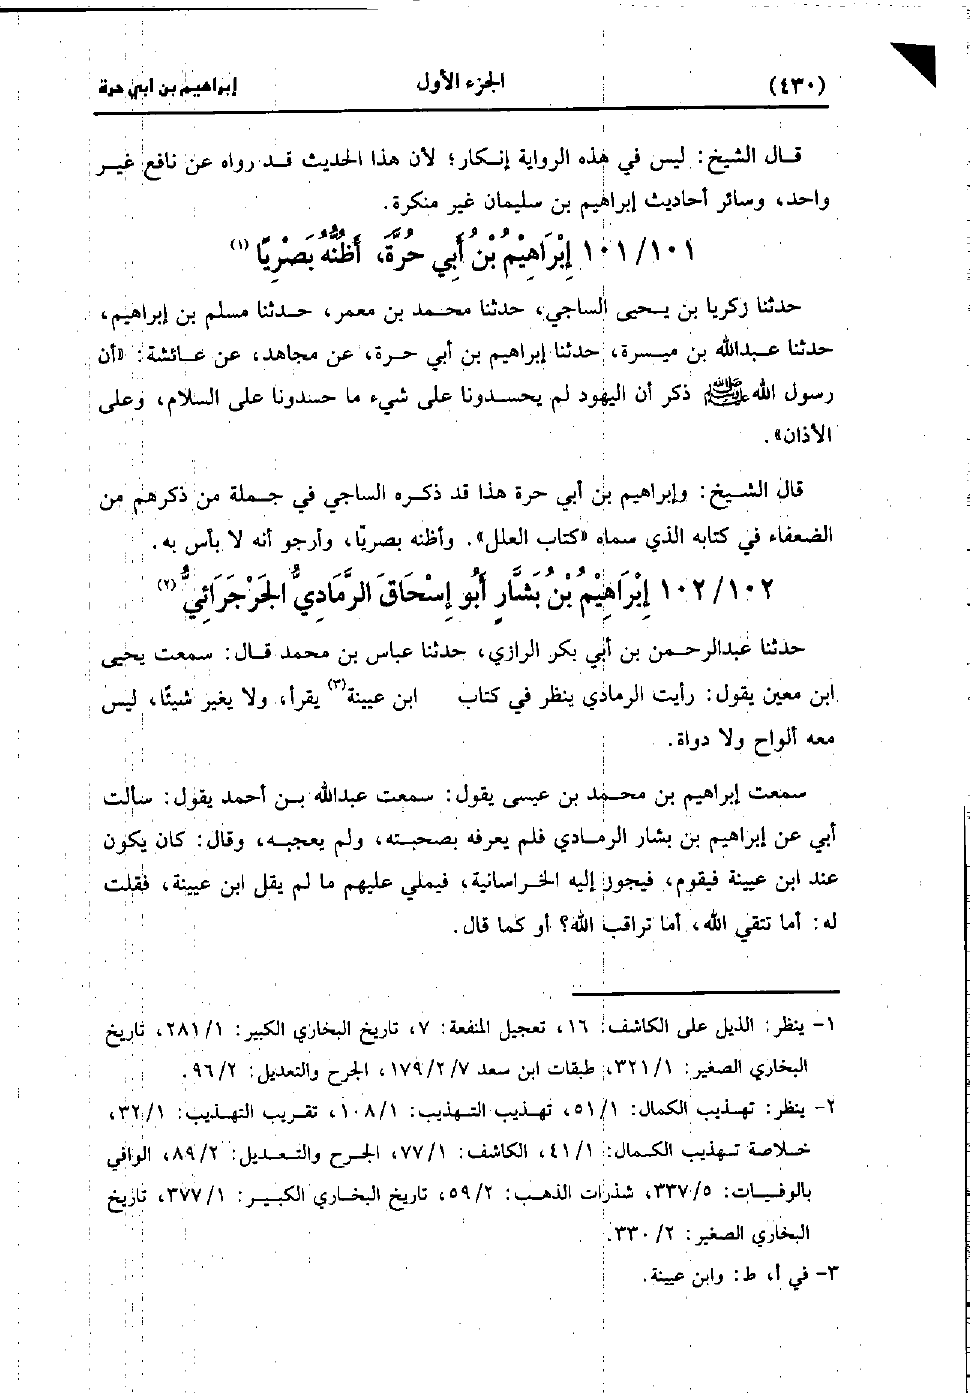 (٤٣٠) الجزء الأول إبراهيم بن أبي حرة
قال الشيخ: ليس في هذه الرواية إنكار؛ لأن هذا الحديث قد رواه عن نافع غير
واحد، وسائر أحاديث إبراهيم بن سليمان غير منكرة.
١٠١/١٠١ إِبْرَاهِيْمُ بْنُ أَبِي حُرَّةَ، أَظُنُّهُ بَصْرِيًا (١)
حدثنا زكريا بن يحيى الساجي، حدثنا محمد بن معمر، حدثنا مسلم بن إبراهيم،
حدثنا عبدالله بن ميسرة، حدثنا إبراهيم بن أبي حرة، عن مجاهد، عن عائشة: «أن
رسول الله ﷺ ذكر أن اليهود لم يحسدونا على شيء ما حسدونا على السلام، وعلى
الأذان».
قال الشيخ: وإبراهيم بن أبي حرة هذا قد ذكره الساجي في جملة من ذكرهم من
الضعفاء في كتابه الذي سماه «كتاب العلل». وأظنه بصريًا، وأرجو أنه لا بأس به.
١٠٢/١٠٢ إِبْرَاهِيْمُ بْنُ بَشَّارٍ أَبُو إِسْحَاقَ الرَّمَادِيُّ الجَرْجَرَائِيُّ (٢)
حدثنا عبدالرحمن بن أبي بكر الرازي، حدثنا عباس بن محمد قال: سمعت يحيى
ابن معين يقول: رأيت الرمادي ينظر في كتاب ابن عيينة(٣) يقرأ، ولا يغير شيئًا، ليس
معه ألواح ولا دواة.
سمعت إبراهيم بن محمد بن عيسى يقول: سمعت عبدالله بن أحمد يقول: سألت
أبي عن إبراهيم بن بشار الرمادي فلم يعرفه بصحبته، ولم يعجبه، وقال: كان يكون
عند ابن عيينة فيقوم، فيجوز إليه الخراسانية، فيملي عليهم ما لم يقل ابن عيينة، فقلت
له: أما تتقي الله، أما تراقب الله؟ أو كما قال.
١- ينظر: الذيل على الكاشف: ١٦، تعجيل المنفعة: ٧، تاريخ البخاري الكبير: ٢٨١/١، تاريخ
البخاري الصغير: ٣٢١/١، طبقات ابن سعد ١٧٩/٢/٧، الجرح والتعديل: ٩٦/٢.
٢- ينظر: تهذيب الكمال: ٥١/١، تهذيب التهذيب: ١٠٨/١، تقريب التهذيب: ٣٢/١،
خلاصة تهذيب الكمال: ٤١/١، الكاشف: ٧٧/١، الجرح والتعديل: ٨٩/٢، الوافي
بالوفيات: ٣٣٧/٥، شذرات الذهب: ٥٩/٢، تاريخ البخاري الكبير: ٣٧٧/١، تاريخ
البخاري الصغير: ٣٣٠/٢.
٣- في أ، ط: وابن عيينة.